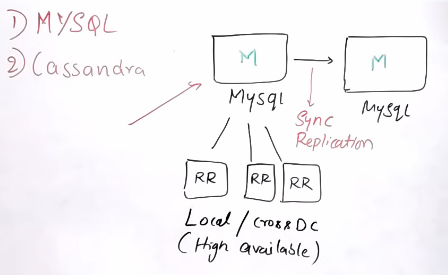 1) MYSQL
2) Cassandra
M
M
Mysql
Mysql
Sync
Replication
RR
RR
RR
Local / cross DC
(High available)